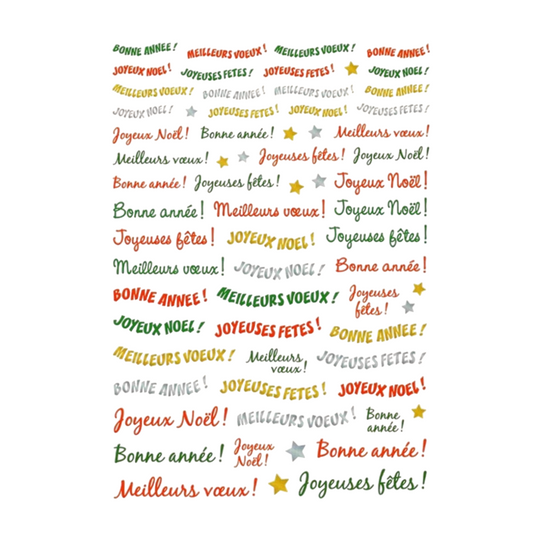 BONNE ANNEE! MEILLEURS VOEUX! MEILLEURS VOEUX! BONNE ANNEE!
JOYEUX NOEL! JOYEUSES FETES! JOYEUSES FETES! JOYEUX NOEL!
MEILLEURS VOEUX! BONNE ANNEE! MEILLEURS VOEUX! BONNE ANNEE!
JOYEUX NOEL! JOYEUSES FETES! JOYEUX NOEL! JOYEUSES FETES!
Joyeux Noël! Bonne année! Meilleurs vœux!
Meilleurs vœux! Joyeuses fêtes! Joyeux Noël!
Bonne année! Joyeuses fêtes! Joyeux Noël!
Bonne année! Meilleurs vœux! Joyeux Noël!
Joyeuses fêtes! JOYEUX NOEL! Joyeuses fêtes!
Meilleurs vœux! JOYEUX NOEL! Bonne année!
BONNE ANNEE! MEILLEURS VOEUX! Joyeuses
fêtes!
JOYEUX NOEL! JOYEUSES FETES! BONNE ANNEE!
MEILLEURS VOEUX! Meilleurs
vœux! JOYEUSES FETES!
BONNE ANNEE! JOYEUSES FETES! JOYEUX NOEL!
Joyeux Noël! MEILLEURS VOEUX! Bonne
année!
Bonne année! Joyeux
Noël! Bonne année!
Meilleurs vœux! Joyeuses fêtes!